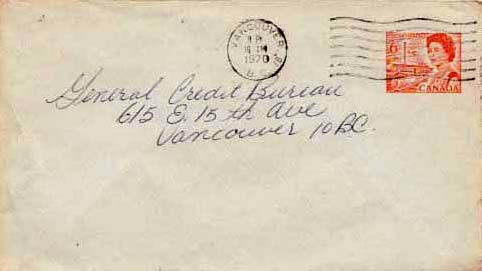 VANCOUVER, B.C.
1970
6
CANADA
General Credit Bureau
615 E. 15 th Ave
Vancouver 10 BC.